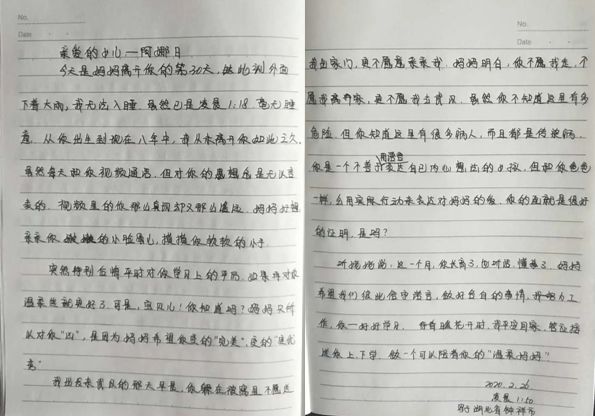 No.
Date
亲爱的女儿—阿娜日
今天是妈妈离开你的第30天,此刻外面
下着大雨,我无法入睡.虽然已是凌晨1:18 毫无睡
意.从你出生到现在八年中,我从未离开你如此之久.
虽然每天和你视频通话,但对你的思想念是无以言
表的.视频里的你那么真实却又那么遥远.妈妈好想
亲亲你嫩嫩的小脸蛋儿,摸摸你软软的小手.
突然特别后悔平时对你学习上的严厉.如果再对你
温柔些就更好了.可是,宝贝儿!你知道吗?妈妈只所
以对你"凶",是因为妈妈希望你变的"完美",变的"更优
秀"
我出发来武汉的那天早晨,你躲在被窝里不愿送
No.
Date
我出家门,更不愿意亲亲我.妈妈明白,你不愿我走,不
愿我离开家,更不愿我去武汉.虽然你不知道这里有多
危险.但你知道这里有很多病人,而且都是传染病.
用语言
你是一个不善于表达自己内心想法的女孩,但和爸爸
一样,会用实际行动来表达对妈妈的爱.你的画就是很好
的证明,是吗?
听姥姥说:这一个月,你长高了,也听话、懂事了.妈妈
希望我们彼此信守诺言,做好各自的事情,我努力工
作,你一好好学习.待春暖花开时,我平安回家,答应接
送你上、下学.做一个可以陪着你的"温柔妈妈"!
2020.2.26
凌晨1:50
于湖北省钟祥市